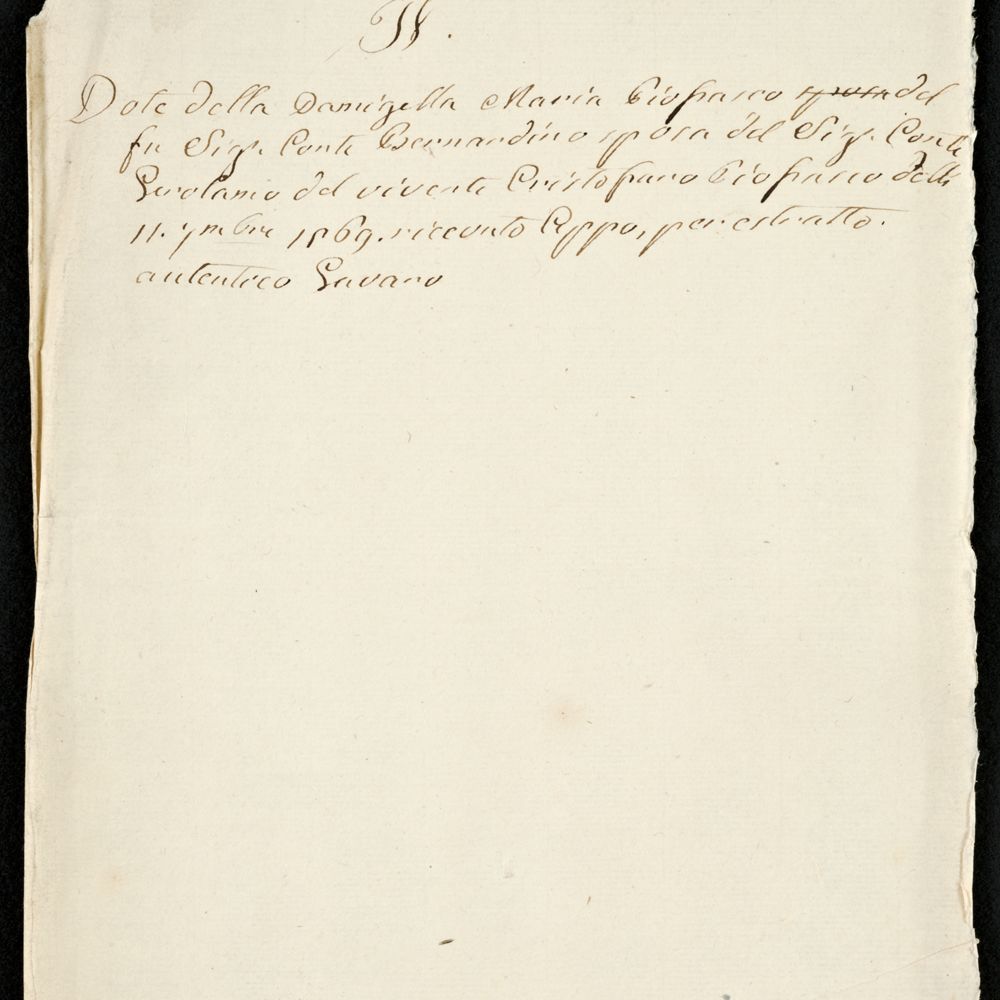 Dote della Damigella Maria Piofrasco sposa del
fu Sigr. Conte Bernardino sposa del Sigr. Conte
Gerolamo del vivente Cristofaro Piofrasco delli
11. 7mbre 1569. ricevuto Appo, per estratto.
autentico Gavaro